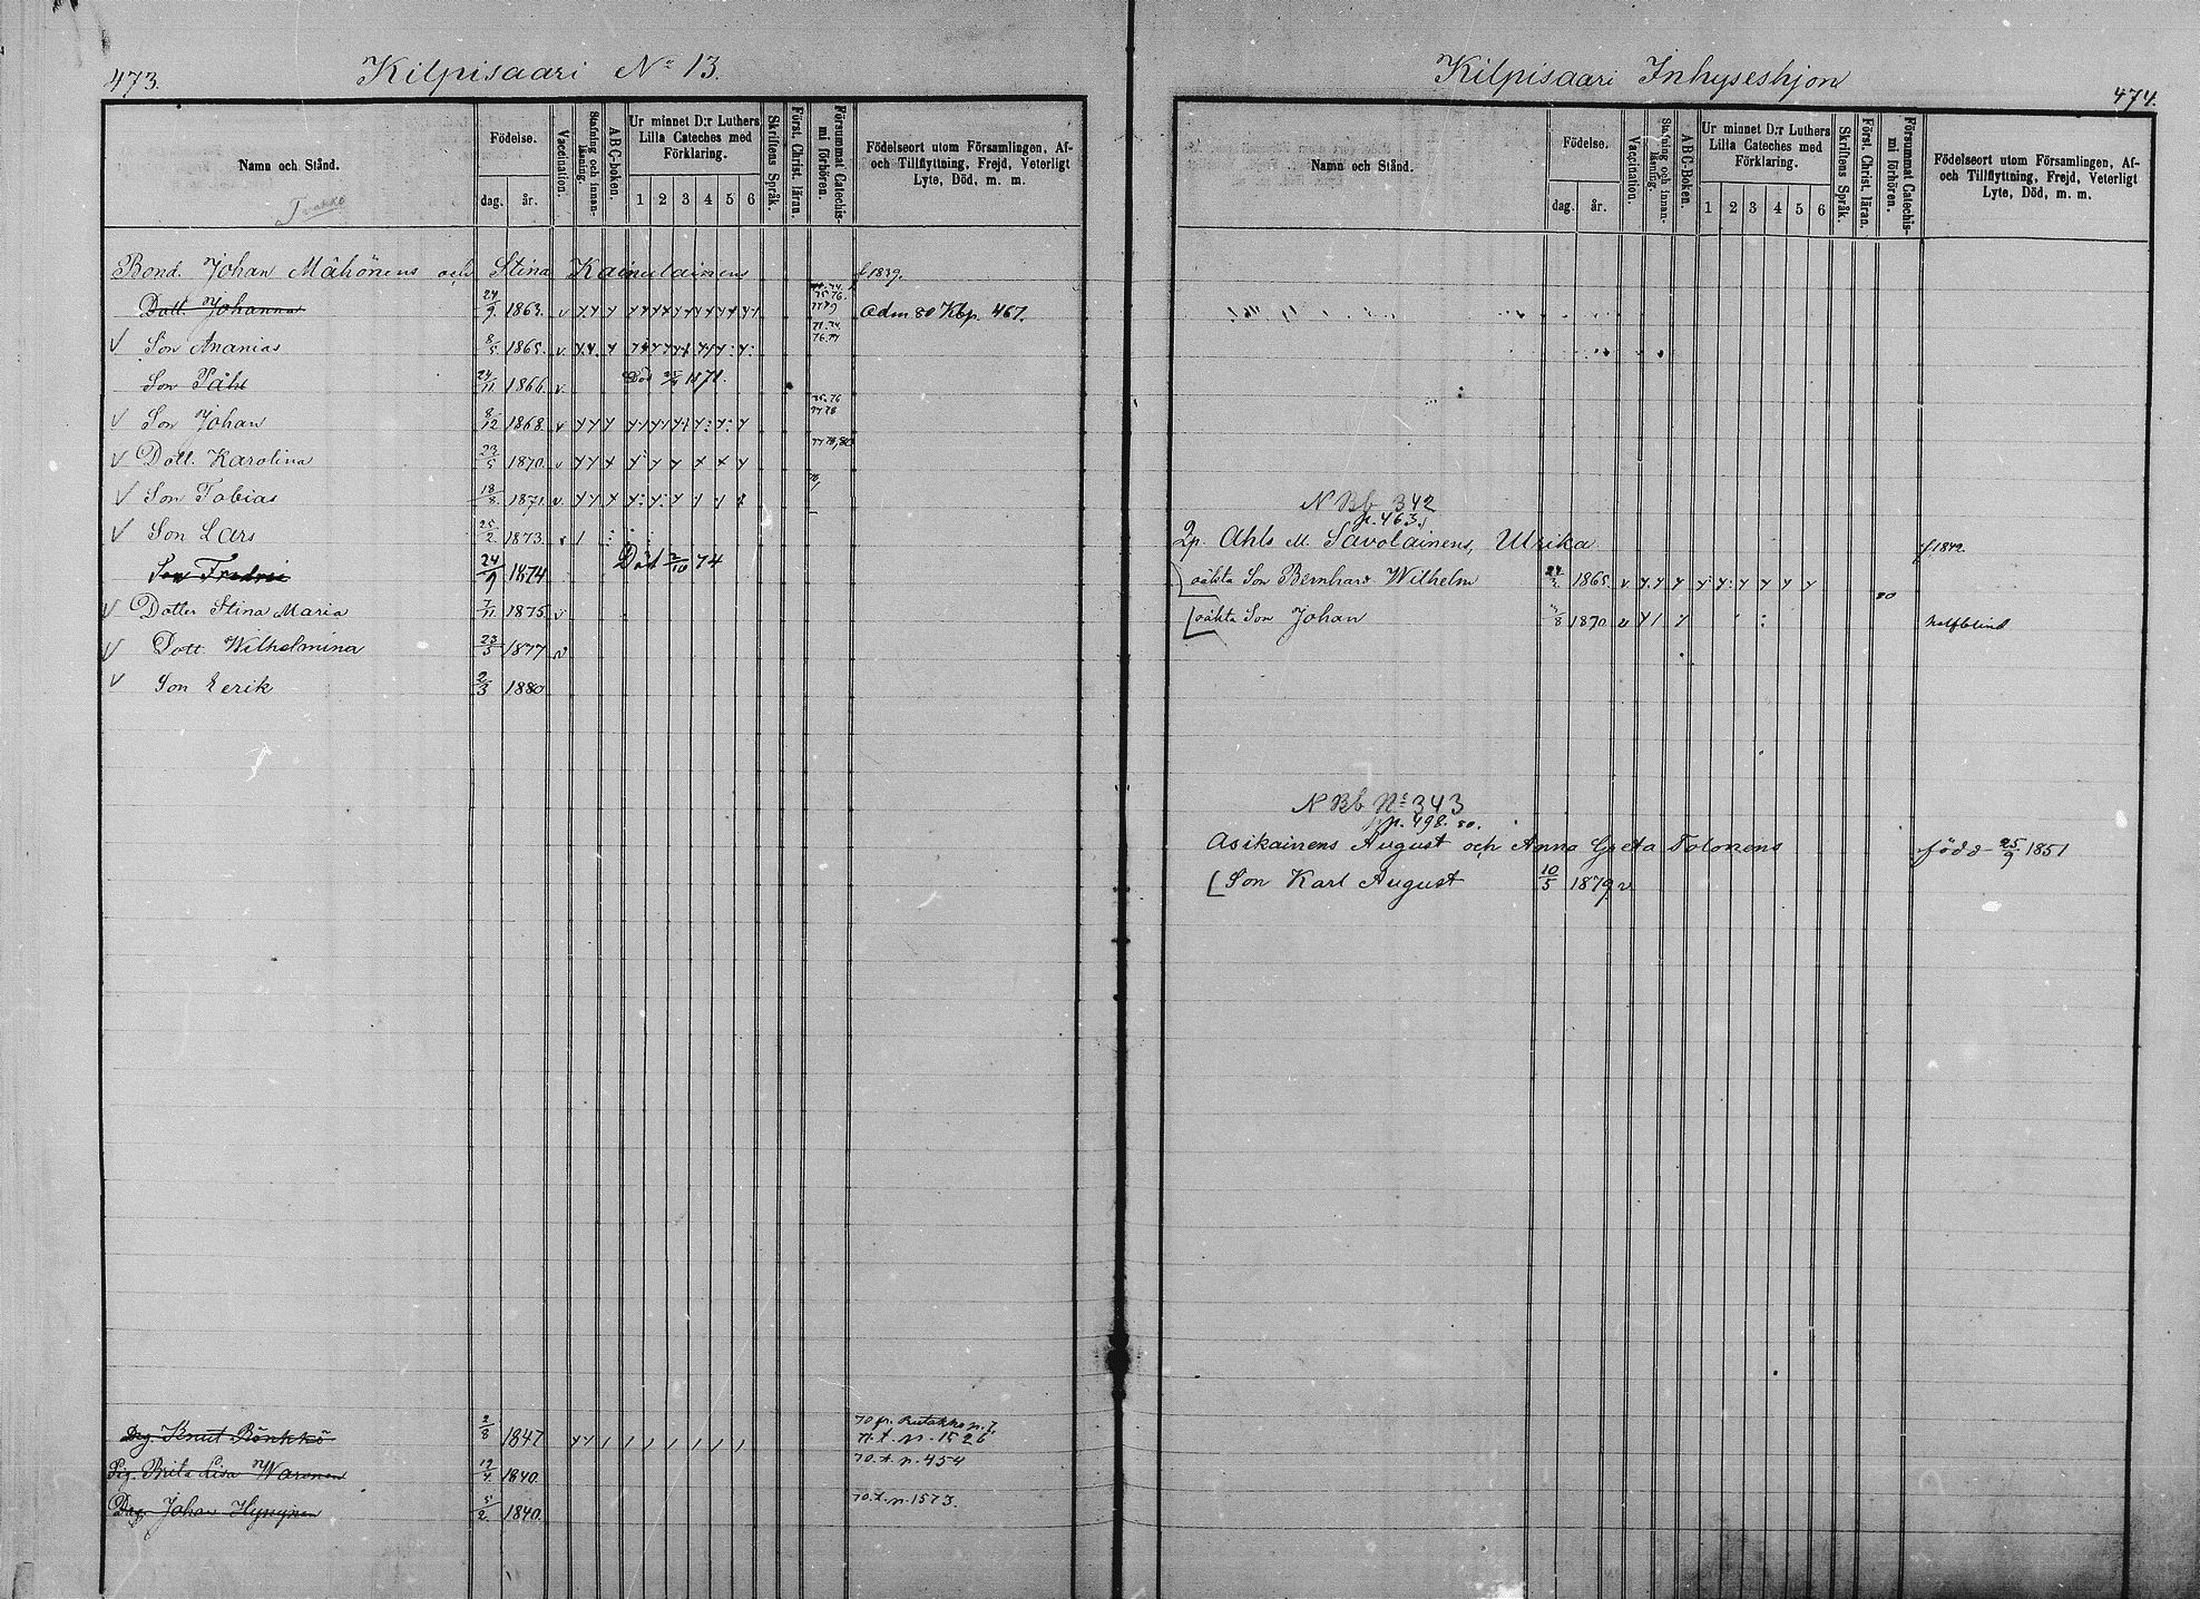 473.
Kilpisaari No 13.
Namn och Stånd.
Födelse.
dag.
år.
Vaccination.
Stafning och innan-
läsning.
ABC-boken.
Ur minnet D:r Luthers
Lilla Cateches med
Förklaring.
1 2 3 4 5 6
Skriftens Språk.
Först. Christ. läran.
Försummat Catechis-
mi förhören.
Födelseort utom Församlingen, Af-
och Tillflyttning, Frejd, Veterligt
Lyte, Död, m. m.
Bond. Johan Mähönens och Stina Kainulainens f 1839.
Dott. Johanna 24/9 1863. v Adm 80 Kbp. 467.
V Son Ananias 8/5 1865. v.
Son Påhl 24/11 1866. v. Död 25/4 1871.
V Son Johan 8/12 1868. v
V Dott. Karolina 23/5 1870. v
V Son Tobias 18/8 1871. v.
V Son Lars 25/2 1873. v
Son Fredric 24/9 1874 Död 2/10 74
V Dotter Stina Maria 7/11 1875. v
V Dott. Wilhelmina 23/5 1877 v
V Son Eerik 2/3 1880
Drg. Knut Rönkkö 2/8 1847 70 fr. Rutakko n. 7
71. t. p. 1526
Pig. Brita Lisa Waronen 12/4 1840. 70. t. p. 454
Drg. Johan Hyvynen 5/2 1840. 70. t. p. 1573.
Kilpisaari Inhyseshjon
474.
Namn och Stånd.
Födelse.
dag.
år.
Vaccination.
Stafning och innan-
läsning.
ABC-Boken.
Ur minnet D:r Luthers
Lilla Cateches med
Förklaring.
1 2 3 4 5 6
Skriftens Språk.
Först. Christ. läran.
Försummat Catechis-
mi förhören.
Födelseort utom Församlingen, Af-
och Tillflyttning, Frejd, Veterligt
Lyte, Död, m. m.
N Bb 342
p. 463.
Ahls M. Savolainens, Ulrika f 1842.
oäkta Son Bernhard Wilhelm 1865. v
oäkta Son Johan 1870 v 80 halfblind
N Bb No 343
p. 498. 80.
Asikainens August och Anna Greta Tolonens född 25/9 1851
Son Karl August 10/5 1879 v